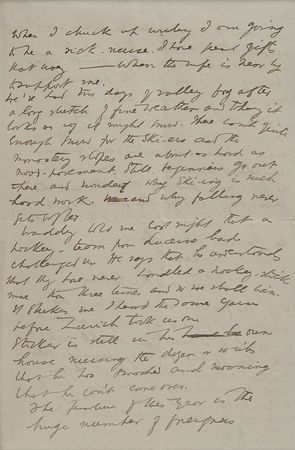 When I chuck up writing I am going
to be a sick-nurse. I have great gifts
that way — when the wife is near by
to support me.
We've had two days of valley fog after
a long stretch of fine weather and they it
looks as if it might snow. There isn't quite
enough snow for the Ski-ers and the
nursery slopes are about as hard as
wood-pavement. Still beginners go out
there and wonder why Ski-ing is such
hard work and why falling never
gets softer.
told me last night that a
hockey-team from had
challenged us. He says that he understands
that they have never handled a hockey stick
more than three times and so we shall win.
It strikes me I heard the same
before Zurich took us on.
is still in his own
house nursing the dozen or
that he has and moaning
that he can't come over.
The feature of this year is the
huge number of foreigners